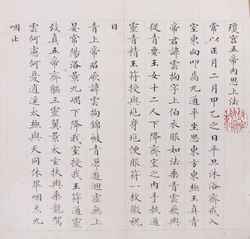 瓊宮五帝內思上法
常以正月二月甲乙之日平旦沐浴齋戒入
室東向叩齒九通平坐思東方東極玉真青
帝君諱雲拘字上伯衣服如法乘青雲飛輿
從青要玉女十二人下降齋室之內手執通
靈青精玉符授與兆身兆便服符一枚微祝
曰
青上帝君厥諱雲拘錦帔青裙遊回虛無上
晏常陽洛景九嵎下降我室授我玉符通靈
致真五帝齊軀三靈翼景太玄扶輿乘龍駕
雲何慮何憂遨遊太極與天同休畢咽九
咽止